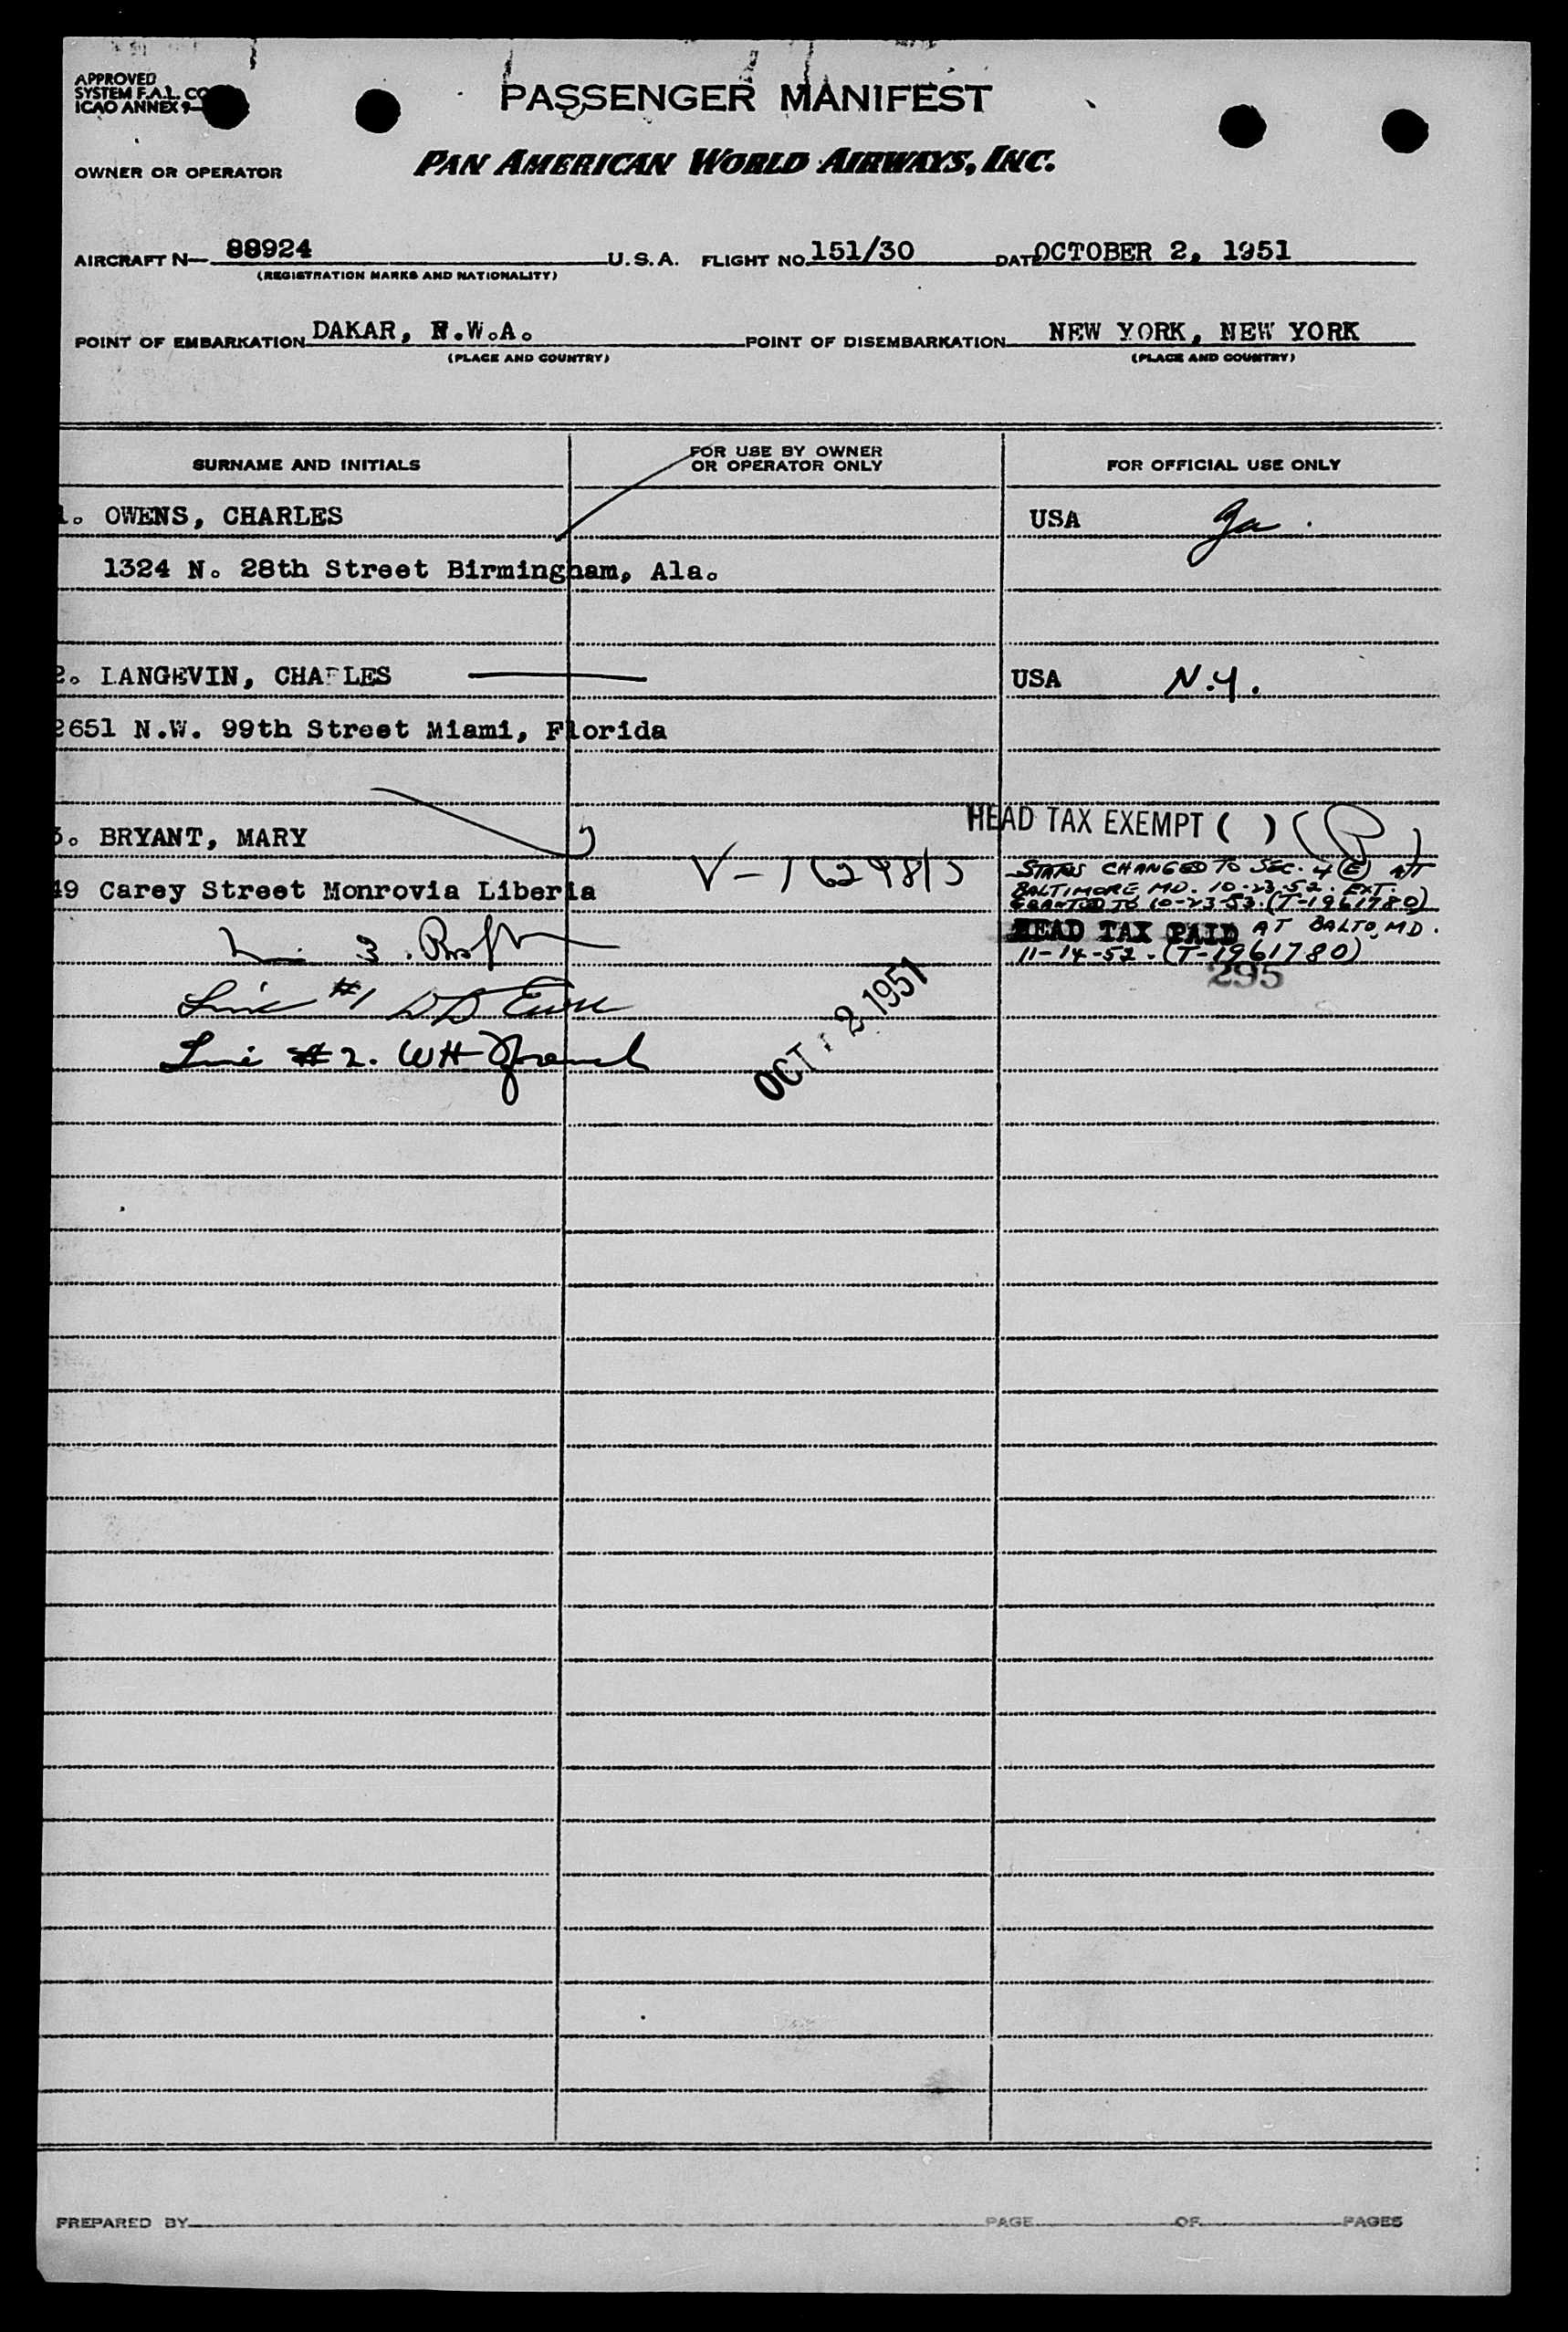 APPROVED
SYSTEM F.A.L. CO
ICAO ANNEX 9-
PASSENGER MANIFEST
OWNER OR OPERATOR
PAN AMERICAN WORLD AIRWAYS, INC.
AIRCRAFT N— 88924 U.S.A. FLIGHT NO. 151/30 DATE OCTOBER 2, 1951
(REGISTRATION MARKS AND NATIONALITY)
POINT OF EMBARKATION DAKAR, F.W.A. POINT OF DISEMBARKATION NEW YORK, NEW YORK
(PLACE AND COUNTRY) (PLACE AND COUNTRY)
SURNAME AND INITIALS
FOR USE BY OWNER
OR OPERATOR ONLY
FOR OFFICIAL USE ONLY
1. OWENS, CHARLES USA Ga.
1324 N. 28th Street Birmingham, Ala.
2. LANGEVIN, CHARLES USA N.Y.
2651 N.W. 99th Street Miami, Florida
HEAD TAX EXEMPT ( )
3. BRYANT, MARY
49 Carey Street Monrovia Liberia
STATUS CHANGED TO SEC. 4 (E) AT
BALTIMORE MD. 10-23-52. EXT.
GRANTED TO 10-23-53. (T-1961780)
HEAD TAX PAID AT BALTO, MD.
11-14-52. (T-1961780)
295
Line 3.
Line #1
Line #2. WH
OCT 2 1951
PREPARED BY PAGE OF PAGES